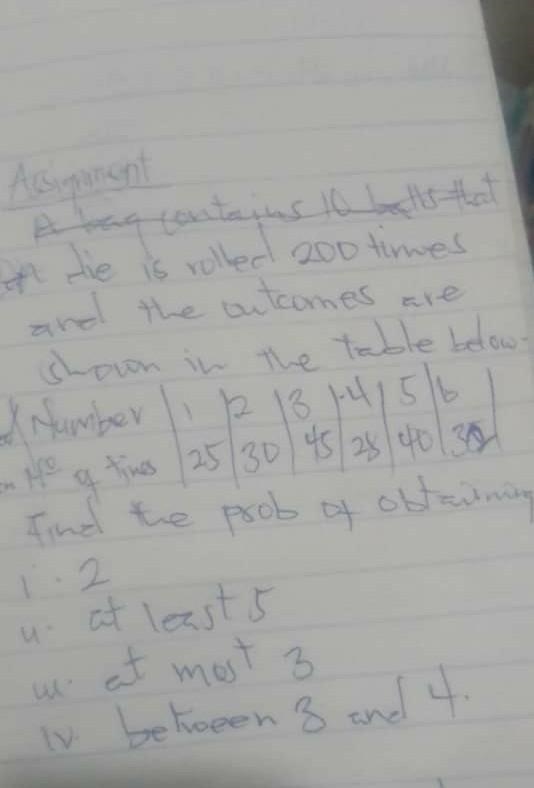 Assignment
A bag contains 10 balls that
A die is rolled 200 times
and the outcomes are
shown in the table below.
Number | 1 | 2 | 3 | 4 | 5 | 6 |
No of times | 25 | 30 | 45 | 28 | 40 |
Find the prob of obtaining
i. 2
ii. at least 5
iii. at most 3
iv. between 3 and 4.